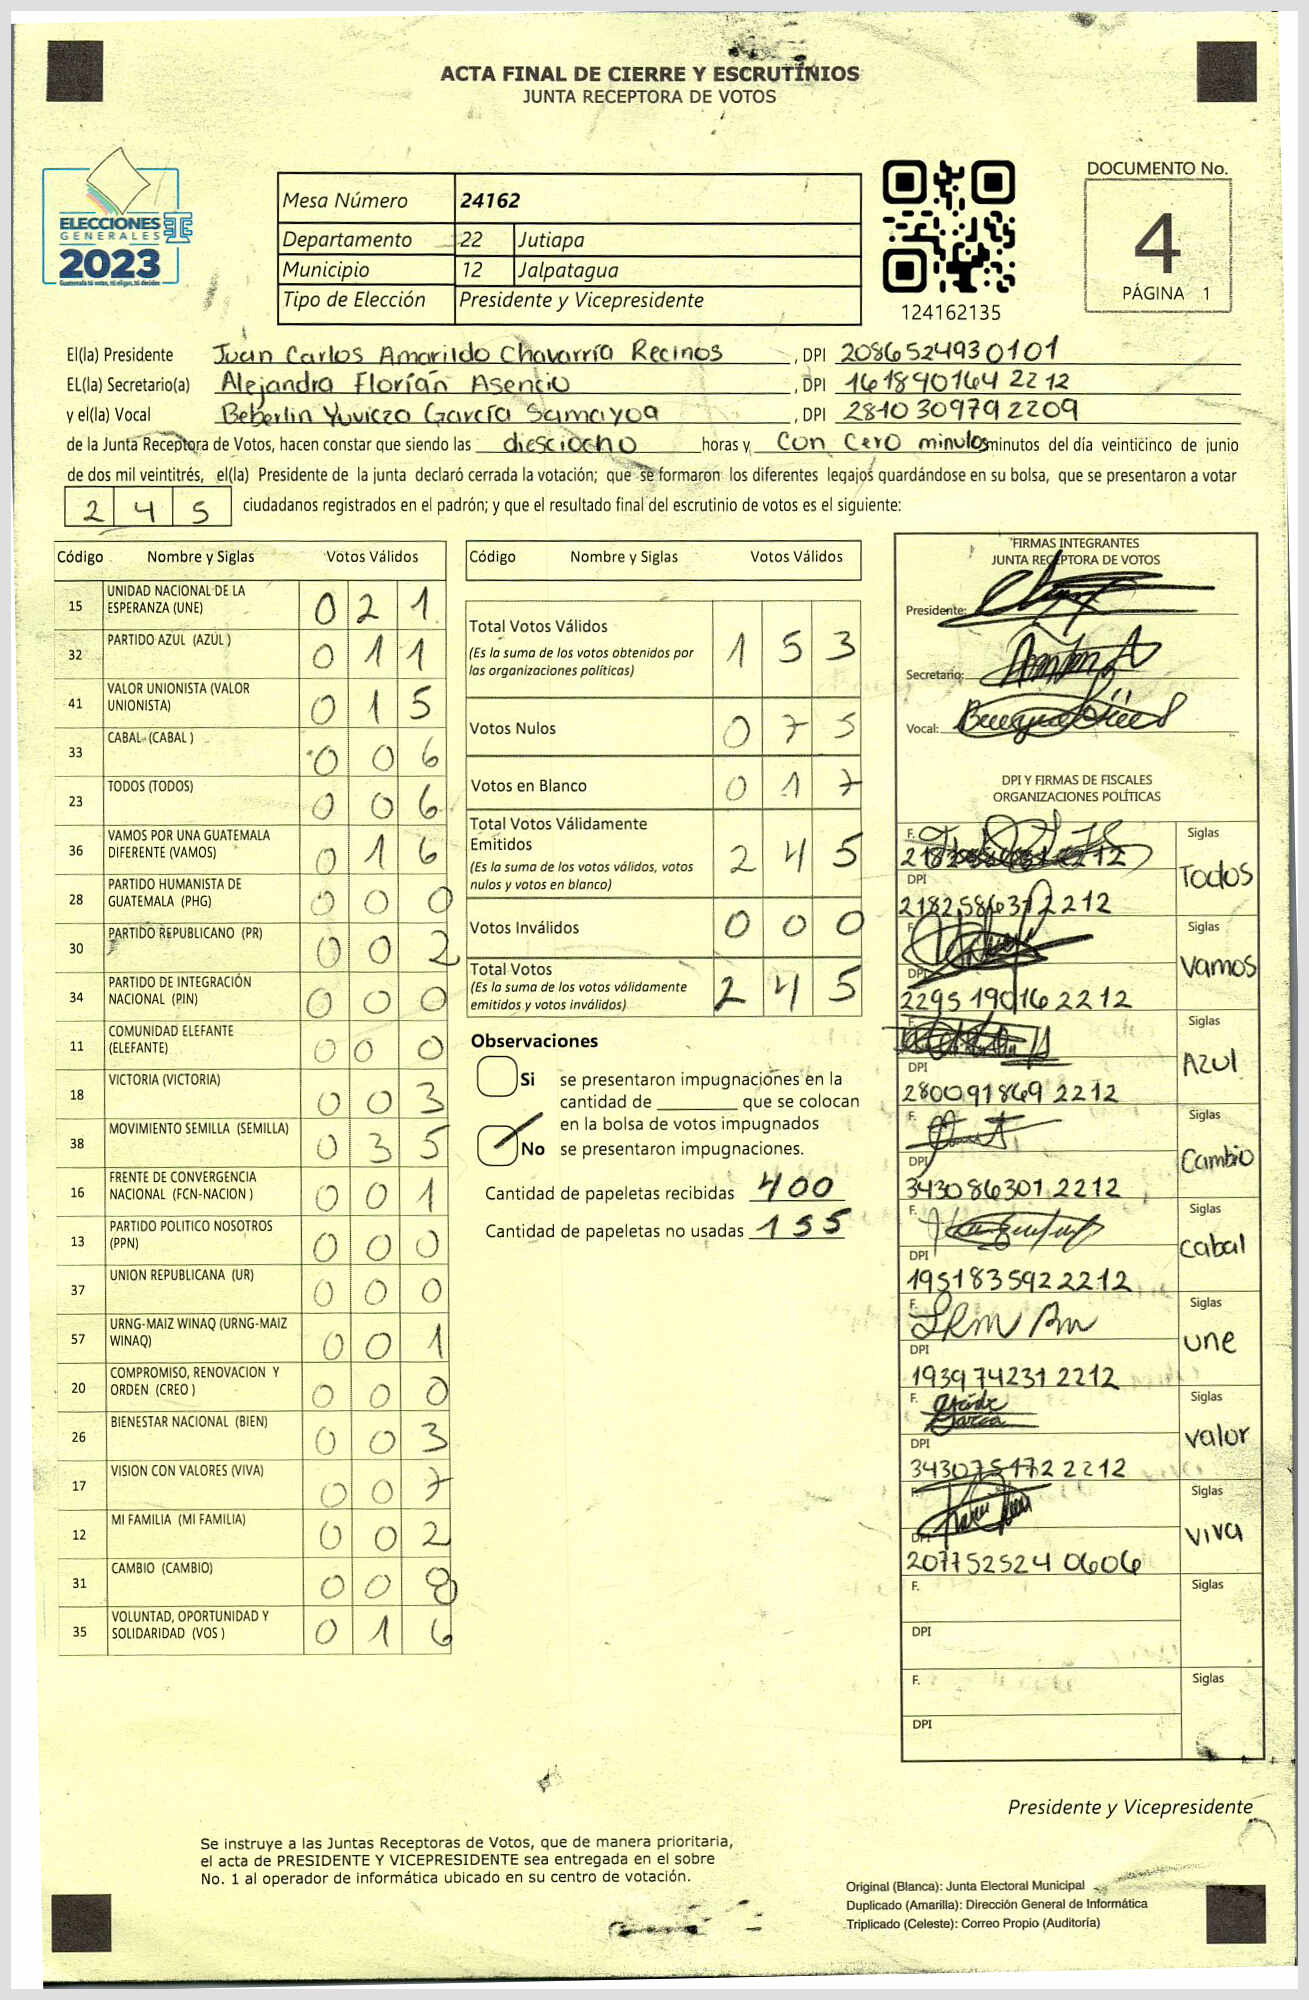 ACTA FINAL DE CIERRE Y ESCRUTINIOS
JUNTA RECEPTORA DE VOTOS
ELECCIONES
GENERALES
2023
Guatemala tú votas, tú eliges, tú decides
Mesa Número 24162
Departamento 22 Jutiapa
Municipio 12 Jalpatagua
Tipo de Elección Presidente y Vicepresidente
124162135
DOCUMENTO No.
4
PÁGINA 1
El(la) Presidente Juan Carlos Amarildo Chavarría Recinos, DPI 2086524930101
EL(la) Secretario(a) Alejandra Florían Asencio, DPI 161890164 2212
y el(la) Vocal Beberlin Yuvicza García Samayoa, DPI 2810309792209
de la Junta Receptora de Votos, hacen constar que siendo las diesciocho horas y con cero minutos minutos del día veinticinco de junio
de dos mil veintitrés, el(la) Presidente de la junta declaró cerrada la votación; que se formaron los diferentes legajos quardándose en su bolsa, que se presentaron a votar
245 ciudadanos registrados en el padrón; y que el resultado final del escrutinio de votos es el siguiente:
Código Nombre y Siglas Votos Válidos
15 UNIDAD NACIONAL DE LA ESPERANZA (UNE) 021
32 PARTIDO AZUL (AZUL ) 011
41 VALOR UNIONISTA (VALOR UNIONISTA) 015
33 CABAL (CABAL ) 006
23 TODOS (TODOS) 006
36 VAMOS POR UNA GUATEMALA DIFERENTE (VAMOS) 016
28 PARTIDO HUMANISTA DE GUATEMALA (PHG) 000
30 PARTIDO REPUBLICANO (PR) 002
34 PARTIDO DE INTEGRACIÓN NACIONAL (PIN) 000
11 COMUNIDAD ELEFANTE (ELEFANTE) 000
18 VICTORIA (VICTORIA) 003
38 MOVIMIENTO SEMILLA (SEMILLA) 035
16 FRENTE DE CONVERGENCIA NACIONAL (FCN-NACION ) 001
13 PARTIDO POLITICO NOSOTROS (PPN) 000
37 UNION REPUBLICANA (UR) 000
57 URNG-MAIZ WINAQ (URNG-MAIZ WINAQ) 001
20 COMPROMISO, RENOVACION Y ORDEN (CREO ) 000
26 BIENESTAR NACIONAL (BIEN) 003
17 VISION CON VALORES (VIVA) 007
12 MI FAMILIA (MI FAMILIA) 002
31 CAMBIO (CAMBIO) 008
35 VOLUNTAD, OPORTUNIDAD Y SOLIDARIDAD (VOS ) 016
Código Nombre y Siglas Votos Válidos
Total Votos Válidos 153
(Es la suma de los votos obtenidos por
las organizaciones políticas)
Votos Nulos 075
Votos en Blanco 017
Total Votos Válidamente
Emitidos 245
(Es la suma de los votos válidos, votos
nulos y votos en blanco)
Votos Inválidos 000
Total Votos 245
(Es la suma de los votos válidamente
emitidos y votos inválidos)
Observaciones
Si se presentaron impugnaciones en la
cantidad de ________ que se colocan
en la bolsa de votos impugnados
No se presentaron impugnaciones.
Cantidad de papeletas recibidas 400
Cantidad de papeletas no usadas 155
FIRMAS INTEGRANTES
JUNTA RECEPTORA DE VOTOS
Presidente:
Secretario:
Vocal:
DPI Y FIRMAS DE FISCALES
ORGANIZACIONES POLÍTICAS
F. Siglas Todos
DPI 218258637 2212
F. Siglas Vamos
DPI 2295 19016 2212
F. Siglas Azul
DPI 280091869 2212
F. Siglas Cambio
DPI 343086301 2212
F. Siglas Cabal
DPI 195183592 2212
F. Siglas Une
DPI 193974231 2212
F. Siglas Valor
DPI 343075172 2212
F. Siglas Viva
DPI 207752524 0606
F. Siglas
DPI
F. Siglas
DPI
Presidente y Vicepresidente
Se instruye a las Juntas Receptoras de Votos, que de manera prioritaria,
el acta de PRESIDENTE Y VICEPRESIDENTE sea entregada en el sobre
No. 1 al operador de informática ubicado en su centro de votación.
Original (Blanca): Junta Electoral Municipal
Duplicado (Amarilla): Dirección General de Informática
Triplicado (Celeste): Correo Propio (Auditoría)